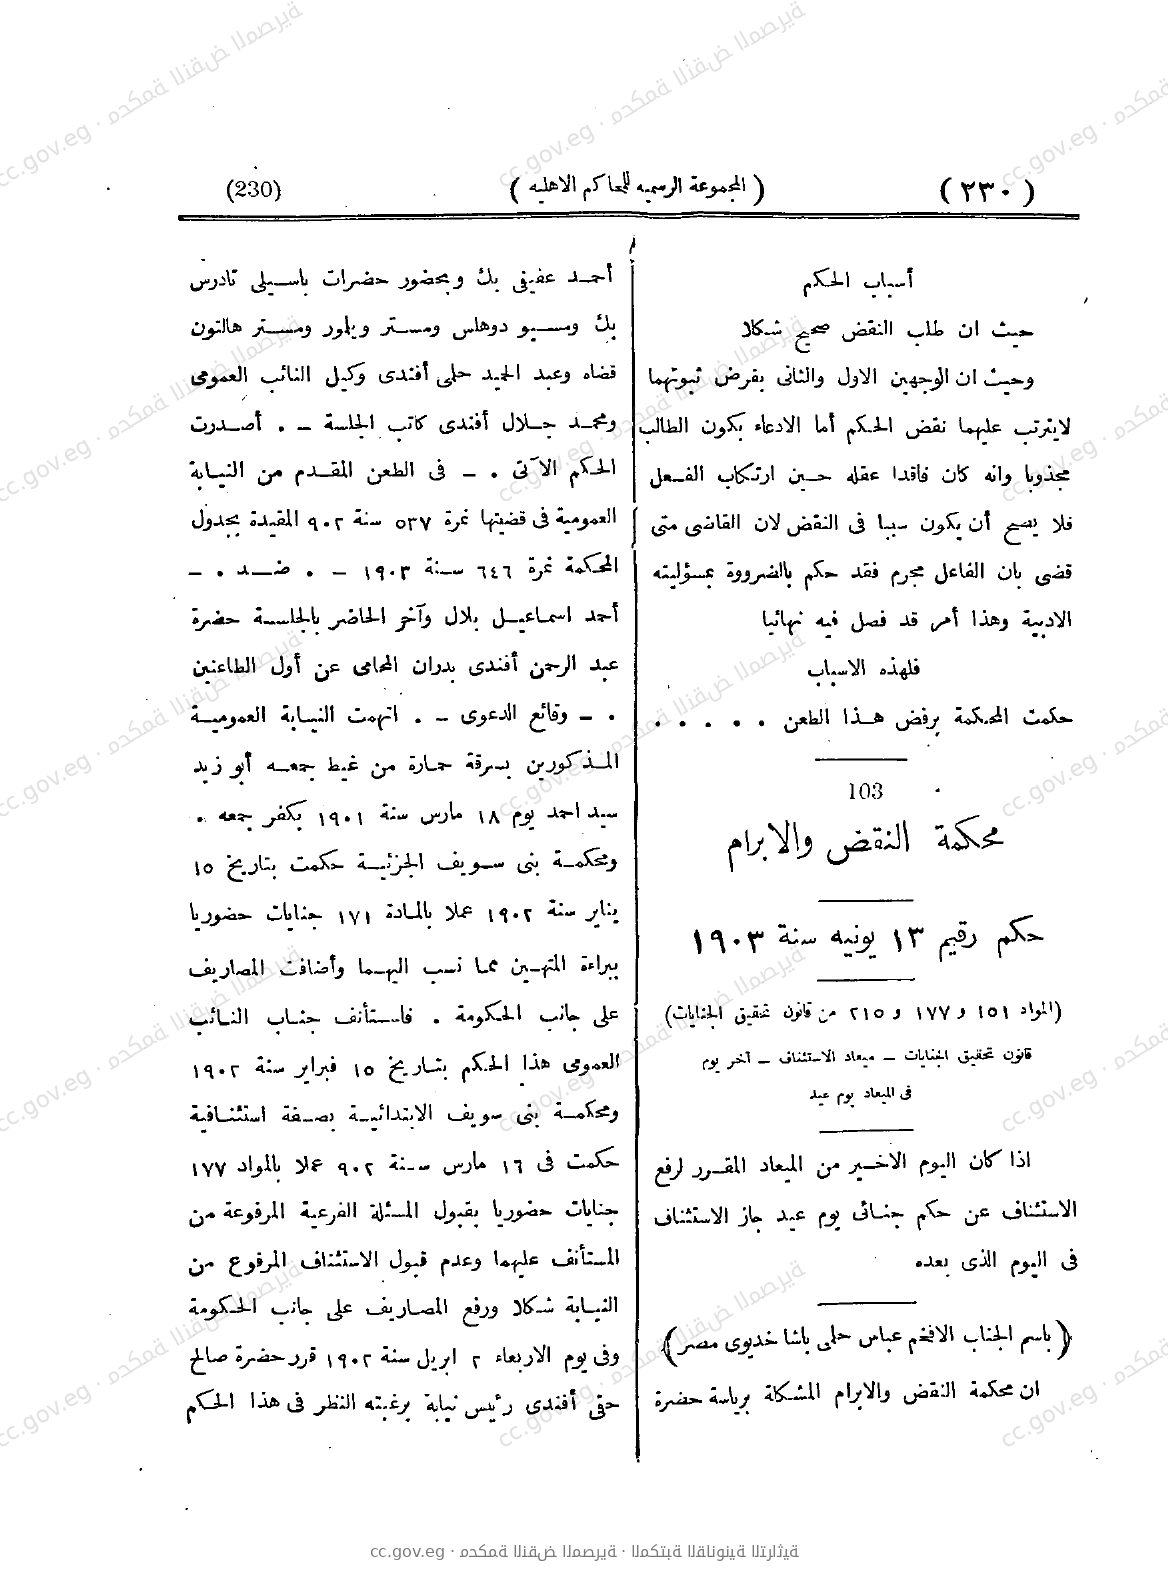 ( ٢٣٠ )
( المجموعة الرسميه للمحاكم الاهليه )
(230)
أسباب الحكم
حيث ان طلب النقض صحيح شكلا
وحيث ان الوجهين الاول والثانى بفرض ثبوتهما
لايترتب عليهما نقض الحكم أما الادعاء بكون الطالب
مجذوبا وانه كان فاقدا عقله حين ارتكاب الفعل
فلا يصح أن يكون سببا فى النقض لان القاضى متى
قضى بان الفاعل مجرم فقد حكم بالضرورة بمسؤليته
الادبية وهذا أمر قد فصل فيه نهائيا
فلهذه الاسباب
حكمت المحكمة برفض هذا الطعن . . . . .
103
محكمة النقض والابرام
حكم رقيم ١٣ يونيه سنة ١٩٠٣
(المواد ١٥١ و ١٧٧ و ٢١٥ من قانون تحقيق الجنايات)
قانون تحقيق الجنايات – ميعاد الاستئناف – آخر يوم
فى الميعاد يوم عيد
اذا كان اليوم الاخير من الميعاد المقرر لرفع
الاستئناف عن حكم جنائى يوم عيد جاز الاستئناف
فى اليوم الذى بعده
(باسم الجناب الافخم عباس حلمى باشا خديوى مصر)
ان محكمة النقض والابرام المشكلة برياسة حضرة
أحمد عفيفى بك وبحضور حضرات باسيلى تادرس
بك ومسيو دوهلس ومستر ويلور ومستر هالتون
قضاه وعبد الحميد حلمى أفندى وكيل النائب العمومى
ومحمد جلال أفندى كاتب الجلسة – . أصدرت
الحكم الآتى . – فى الطعن المقدم من النيابة
العمومية فى قضيتها نمرة ٥٣٧ سنة ٩٠٢ المقيدة بجدول
المحكمة نمرة ٦٤٦ سنة ١٩٠٣ – . ضد . –
أحمد اسماعيل بلال وآخر الحاضر بالجلسة حضرة
عبد الرحمن أفندى بدران المحامى عن أول الطاعنين
. – وقائع الدعوى – . اتهمت النيابة العمومية
المذكورين بسرقة حمارة من غيط جمعه أبو زيد
سيد احمد يوم ١٨ مارس سنة ١٩٠١ بكفر جمعه .
ومحكمة بنى سويف الجزئية حكمت بتاريخ ١٥
يناير سنة ١٩٠٢ عملا بالمادة ١٧١ جنايات حضوريا
ببراءة المتهمين مما نسب اليهما وأضافت المصاريف
على جانب الحكومة . فاستأنف جناب النائب
العمومى هذا الحكم بتاريخ ١٥ فبراير سنة ١٩٠٢
ومحكمة بنى سويف الابتدائية بصفة استئنافية
حكمت فى ١٦ مارس سنة ٩٠٢ عملا بالمواد ١٧٧
جنايات حضوريا بقبول المسئلة الفرعية المرفوعة من
المستأنف عليهما وعدم قبول الاستئناف المرفوع من
النيابة شكلا ورفع المصاريف على جانب الحكومة
وفى يوم الاربعاء ٢ ابريل سنة ١٩٠٢ قرر حضرة صالح
حقى أفندى رئيس نيابة برغبته النظر فى هذا الحكم
cc.gov.eg · محكمة النقض المصرية · المكتبة القانونية التراثية